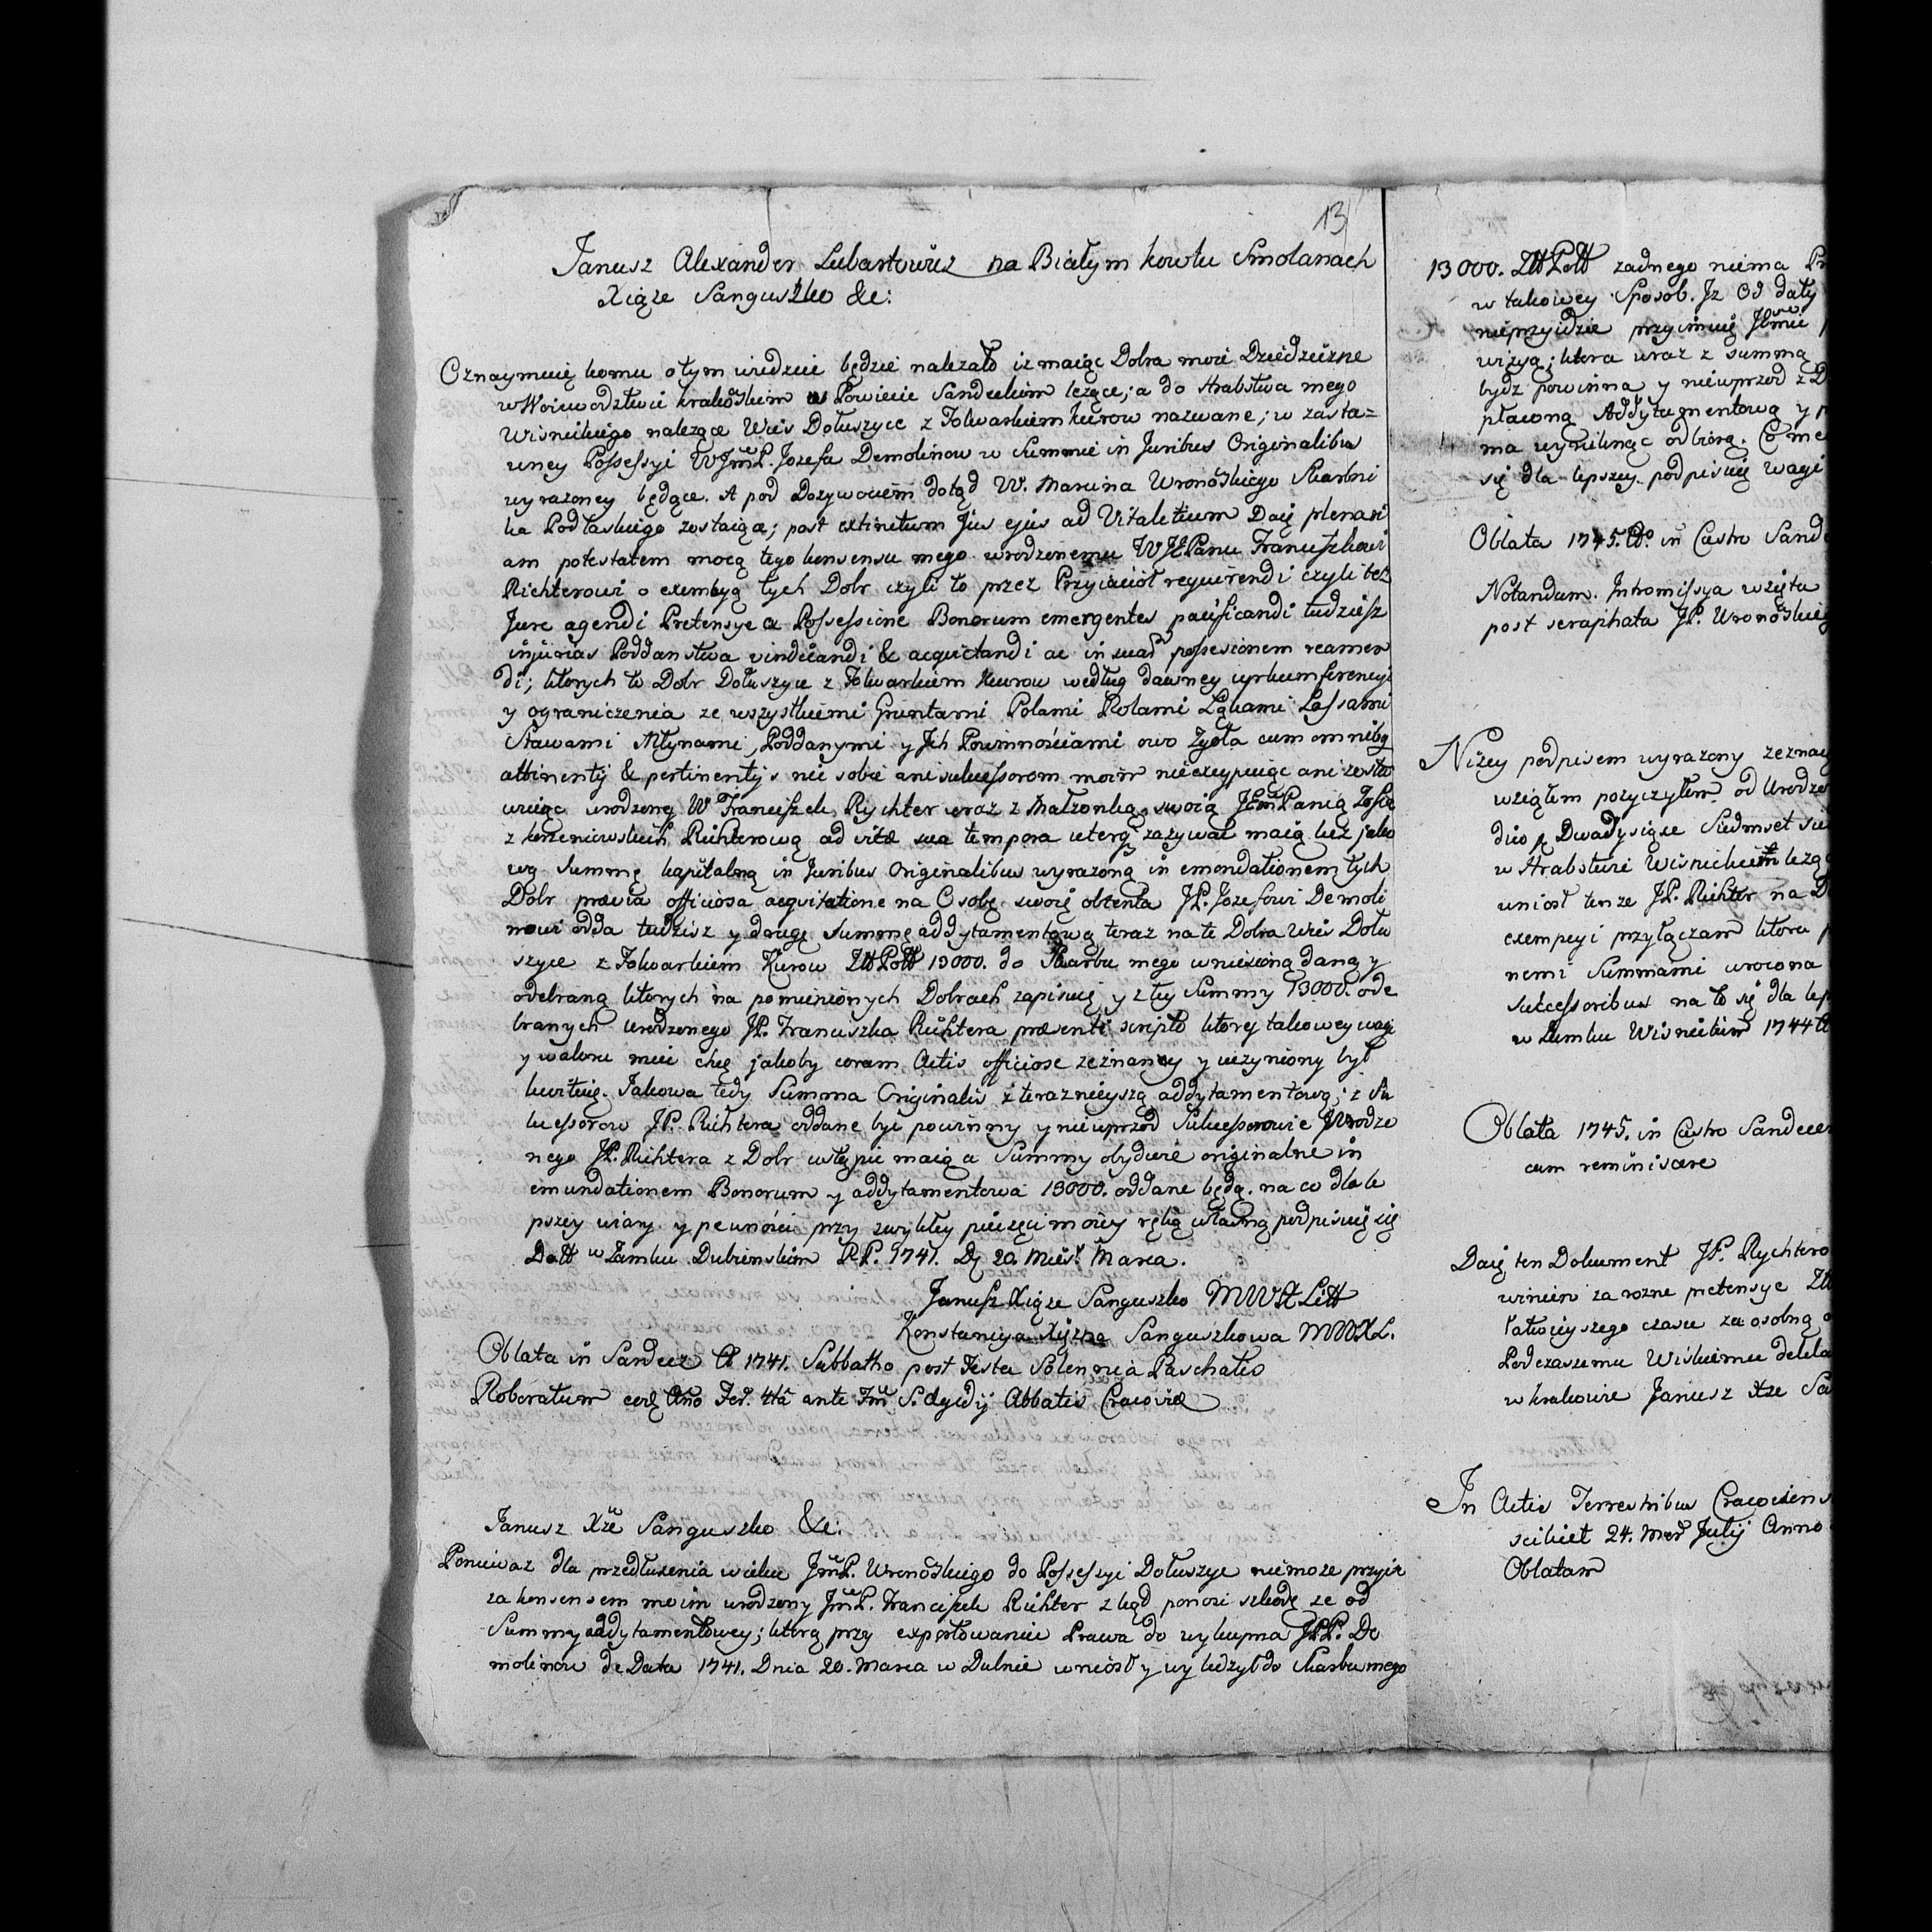 13
Janusz Alexander Lubartowicz na Białym kowlu Smolanach
Xiąże Sanguszko &c:
Oznaymuię komu o tym wiedzieć będzie należało iż maiąc Dobra moie Dziedziczne
w Woiewodztwie krakoskim w Powiecie Sandeckim leżące; a do Hrabstwa mego
Wisnickiego należące Wieś Dołuszyce z Folwarkiem kurow nazwane; w zasta=
wney Possessyi WJmP. Jozefa Demolinow w Summie in Juribus Originalibus
wyrażoney będące. A pod Dożywociem dotąd W. Marcina Wronoskiego Skarbni
ka Podlaskiego zostaiące; post extinctum Jus ejus ad Vitalitium Daię plenari
am potestatem mocą tego konsensu mego urodzonemu WJPanu Franciszkowi
Richterowi o exempcyą tych Dobr czyli to przez Przyiacioł requirendi czyli też
Jure agendi Pretensye a Possessione Bonorum emergentes pacificandi tudziesz
injurias Poddanstwa vindicandi & acquietandi ac in suad possesionem reamen
di; ktorych to Dobr Dołuszyce z Folwarkiem Kurow według dawney cyrkumferencyi
y ograniczenia ze wszystkiemi Gruntami Polami Rolami Łąkami Lassami
Stawami Młynami, Poddanymi y Jch Powinnościami owo zgoła cum omnibg
attinentijs & pertinentijs nic sobie ani sukcessorom moim nie excypuiąc ani zosta
wuiąc urodzony W Franciszek Rychter wraz z Małżonką swoią JEmPanią Zofią
z korzeniowskich Richterową ad vitæ sua tempora uterq zażywać maią bez jako
wą Summę kapitalną in Juribus Originalibus wyrażoną in emondationem tych
Dobr prævia officiosa acquitatione na Osobę swoię obtenta JP. Jozefowi Demoli
nowi odda tudzisz y drugę Summę addytamentową teraz na te Dobra Wieś Dołu
szyce z Folwarkiem Kurow Ztt Poltt 13000. do Skarbu mego wniesioną daną y
odebraną ktorych na pomienionych Dobrach zapisuię y z tey Summy 13000. ode
branych Urodzonego JP. Franciszka Richtera præsenti scripto ktorej takowey wagi
y waloru mieć chcę jakoby coram Actis officiose zeznany y uczyniony był
kwituię. Jakowa tedy Summa Originalis z teraznieyszą addytamentową; z Su
kcessorow JP. Richtera oddane być powinny y nieuprzod Sukcessorowie Urodzo
nego JP. Richtera z Dobr ustąpić maią a Summy obydwie originalne in
emundationem Bonorum y addytamentowa 13000. oddane będą. na co dla le
pszey wiary y pewności przy zwykłey pieczęci moiey ręką własną podpisuię się
Datt w Zamku Dubienskim RP. 1741. D. 20. Mies. Marca.
Janusz Xiąże Sanguszko MWX Litt
Konstancya Xiężna Sanguszkowa MWXL.
Oblata in Sandecz Ao 1741. Sabbatho post Festa Solennia Paschatis
Roboratum eodg Ano Fer. 4ta ante Fm S. Ægidij Abbatis Cracoviæ
Janusz Xże Sanguszko &c:
Ponieważ dla przedłużenia wieku JmP. Wronoskiego do Possessyi Dołuszyc niemoże przyiść
za konsensem moim urodzony JmP. Franciszek Richter zkąd ponosi szkodę że od
Summy addytamentowey; ktorą przy expertowaniu Prawa do wykupna JPP. De
molinow de Data 1741. Dnia 20. Marca w Dubnie wniosł y wyliczył do Skarbu mego
13000. Ztt Poltt żadnego niema
w takowey Sposob. Jż od daty
nieprzyidzie przyimuię
wizyą; ktora wraz z summą
bydz powinna y nieuprzod z
płaconą Addytamentową y
ma wyniknąć odbiorą. Co
się dla lepszey podpisuię wagi
Oblata 1745. Ao. in Castro
Notandum. Intromissya wzięta
post seraphata JP.
Niżey podpisem wyrażony
wziąłem pożyczyłem od
dwo Dwadysiące Siedmset
w Hrabstwie Wisnickim
uniosł tenże JP. Richter na
exempcyi przyłączam ktora
nemi Summami wrocona
Sukcessoribus na to się dla
w Zamku Wisnickim 1744
Oblata 1745. in Castro
cum reminiscere
Daię ten Dokument JP.
winien za rozne pretensye
łatwieyszego czasu za osobną
Podczaszemu Wislickiemu
w krakowie Janusz Xże
In Actis Terrestribus
scilicet 24. Julij Anno
Oblatam